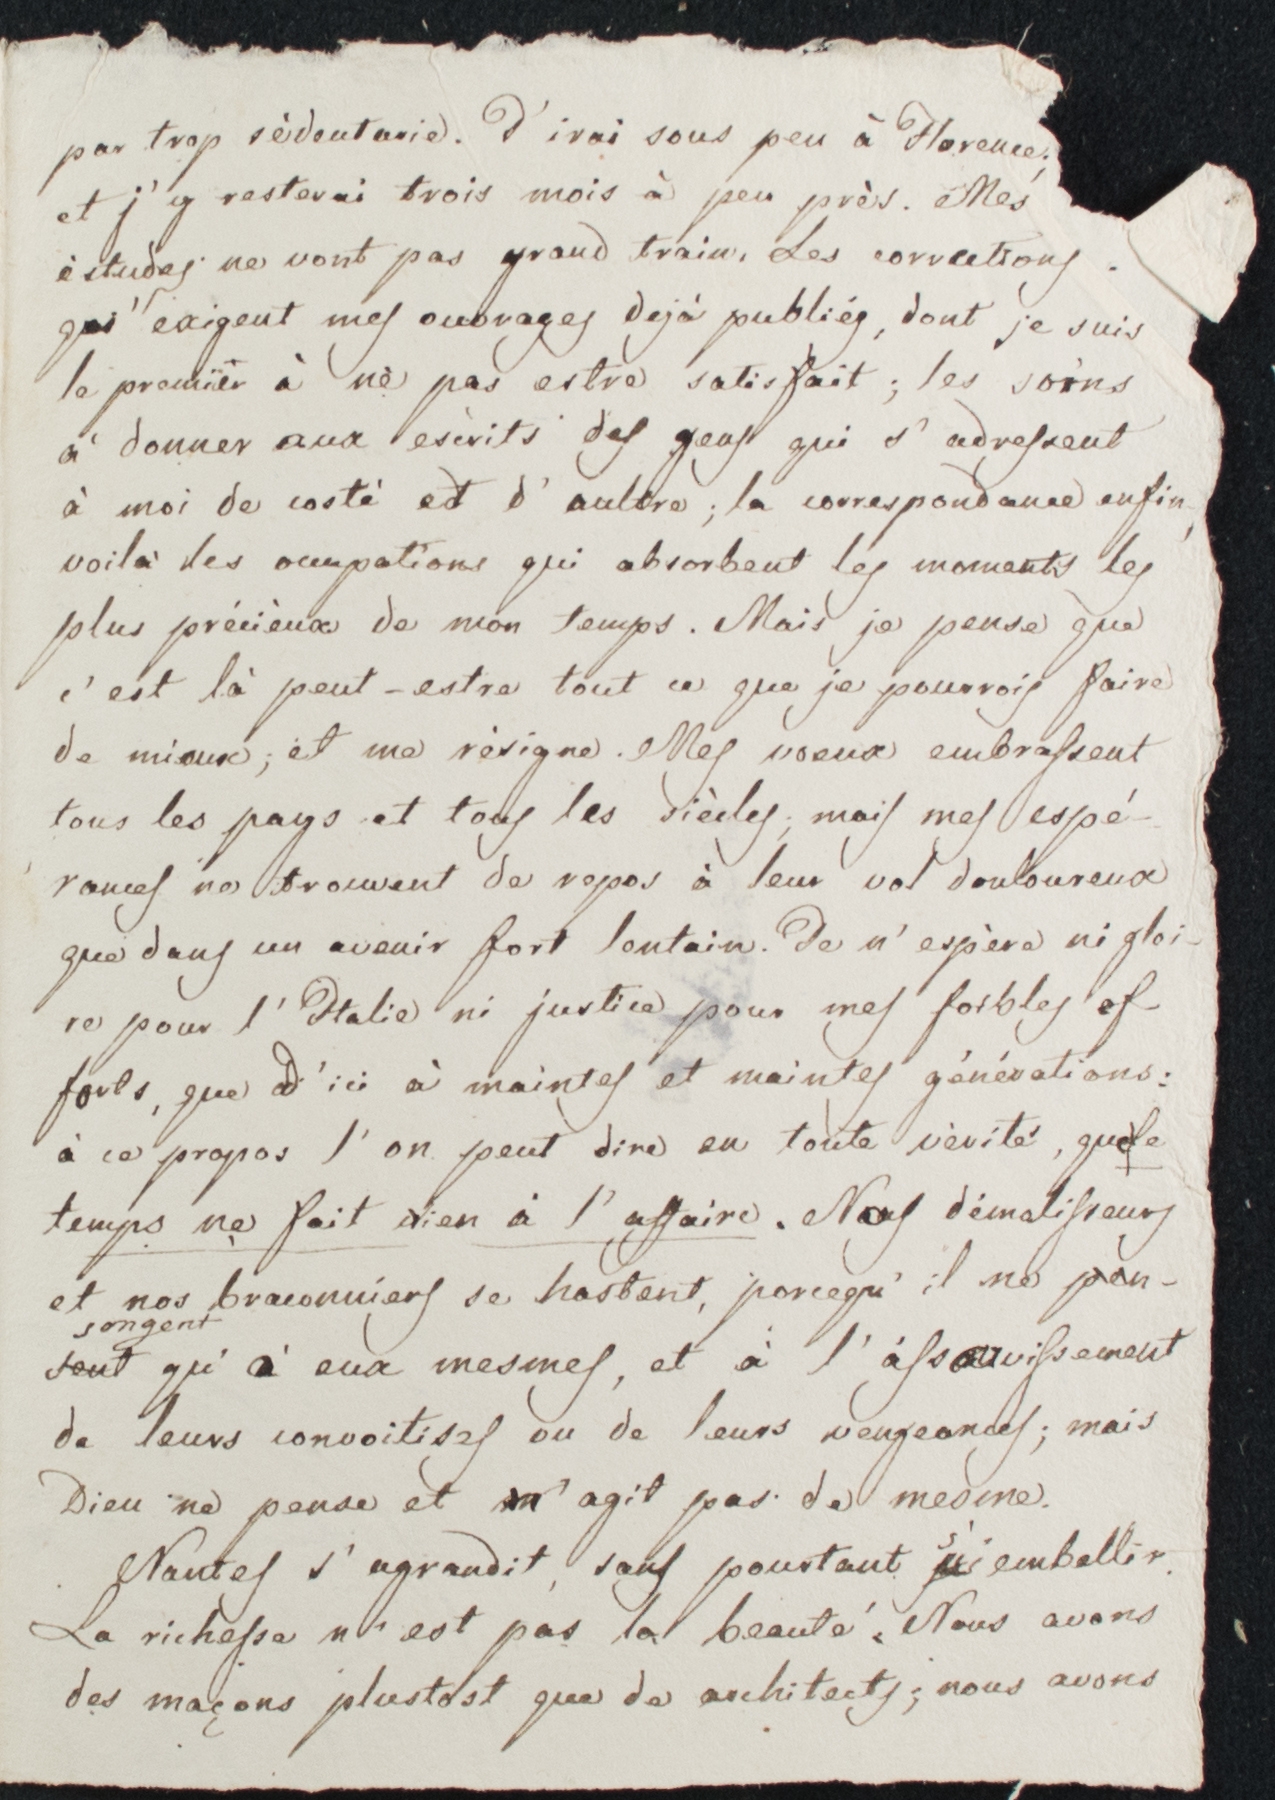 par trop sèdentarie. J'irai sous peu à Florence;
et j'y resterai trois mois à peu près. Mes
èstudes ne vont pas grand train. Les corrections
qu'exigent mes ouvrages dejà publiés, dont je suis
le premier à nè pas estre satisfait; les soins
à donner aux escrits des gens qui s'adressent
à moi de costé et d'aultre; la correspondance enfin,
voilà les occupations qui absorbent les moments les
plus précièux de mon temps. Mais je pense que
c'est là peut-estre tout ce que je pourrois faire
de mieux; et me rèsigne. Mes voeux embrassent
tous les pays et tous les siècles; mais mes espé-
rances ne trouvent de repos à leur vol douloureux
que dans un avenir fort lontain. Je n'espère ni gloi-
re pour l'Italie ni justice pour mes foibles ef-
forts, que d'ici à maintes et maintes générations:
à ce propos l'on peut dire en toute vèrité, que le
temps ne fait rien à l'affaire. Nos démolisseurs
et nos braconniers se hastent, parcequ'il ne pen-
songent
sent qu'à eux mesmes, et à l'assouvissement
de leurs convoitises ou de leurs vengeances; mais
Dieu ne pense et n'agit pas de mesme.
Nantes s'agrandit, sans pourtant s'embellir.
La richesse n'est pas la beauté. Nous avons
des maçons plustost que de architects; nous avons